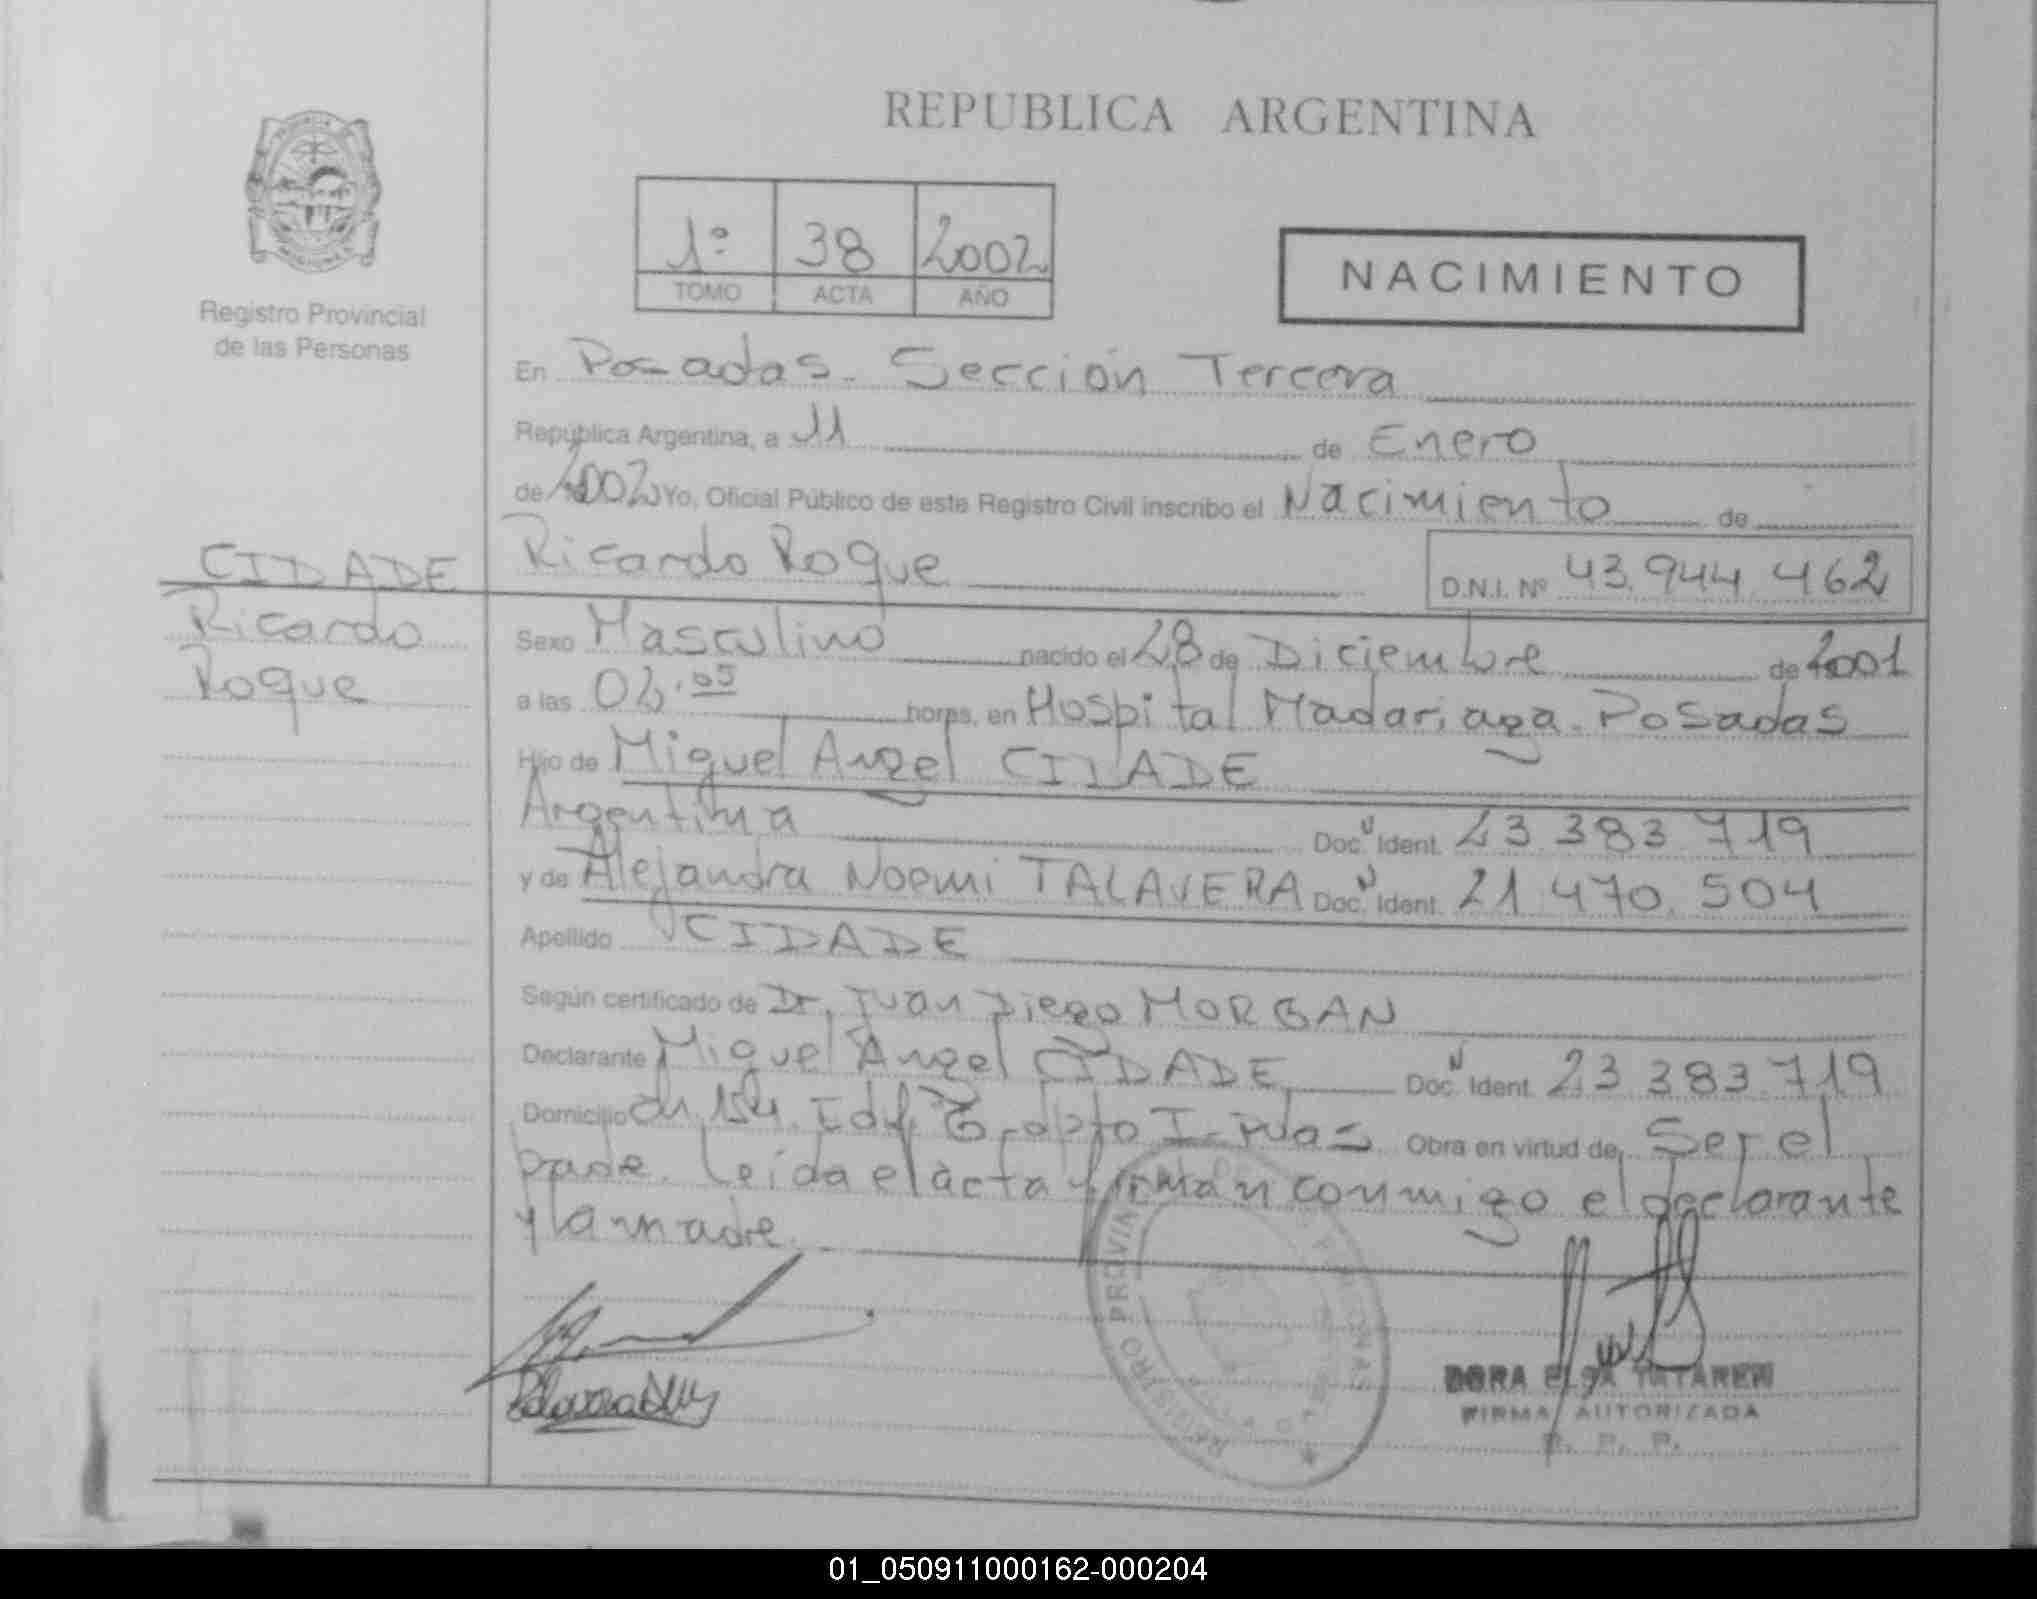 REPUBLICA ARGENTINA
1º 38 2002
TOMO ACTA AÑO
NACIMIENTO
Registro Provincial
de las Personas
En Posadas. Sección Tercera
República Argentina, a 11 de Enero
de 2002 Yo, Oficial Público de este Registro Civil inscribo el Nacimiento de
CIDADE
Ricardo
Roque
Ricardo Roque D.N.I. Nº 43.944.462
Sexo Masculino nacido el 28 de Diciembre de 2001
a las 02.05 horas, en Hospital Madariaga - Posadas
Hijo de Miguel Angel CIDADE
Argentina Doc. N Ident. 23.383.719
y de Alejandra Noemi TALAVERA Doc. N Ident. 21.470.504
Apellido CIDADE
Según certificado de Dr. Juan Diego MORGAN
Declarante Miguel Angel CIDADE Doc. N Ident. 23.383.719
Domicilio Ch. 154. Edif. dpto I - Pdas Obra en virtud de Ser el
padre. Leída el acta firman conmigo el declarante
y la madre.
REGISTRO PROVINCIAL DE LAS PERSONAS
DORA ELSA
FIRMA AUTORIZADA
R. P. P.
01_050911000162-000204